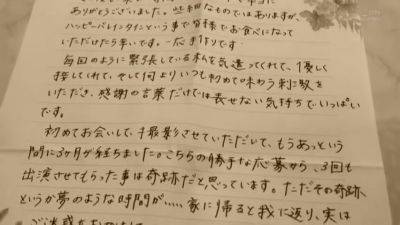 ありがとうございました。些細なものではありますが、
ハッピーバレンタインという事で皆様でお食べになって
いただけたら幸いです。一応手作りです…
毎回のように緊張している私を気遣ってくれて、優しく
接してくれて、そして何よりいつも初めて味わう刺激を
いただき、感謝の言葉だけでは表せない気持ちでいっぱい
です。
初めてお会いして、撮影させていただいて、もうあっという
間に3ヶ月が経ちました。こちらの勝手な応募から、3回も
出演させてもらった事は奇跡だと思っています。ただその奇跡
というか夢のような時間が……家に帰ると我に返り、実は